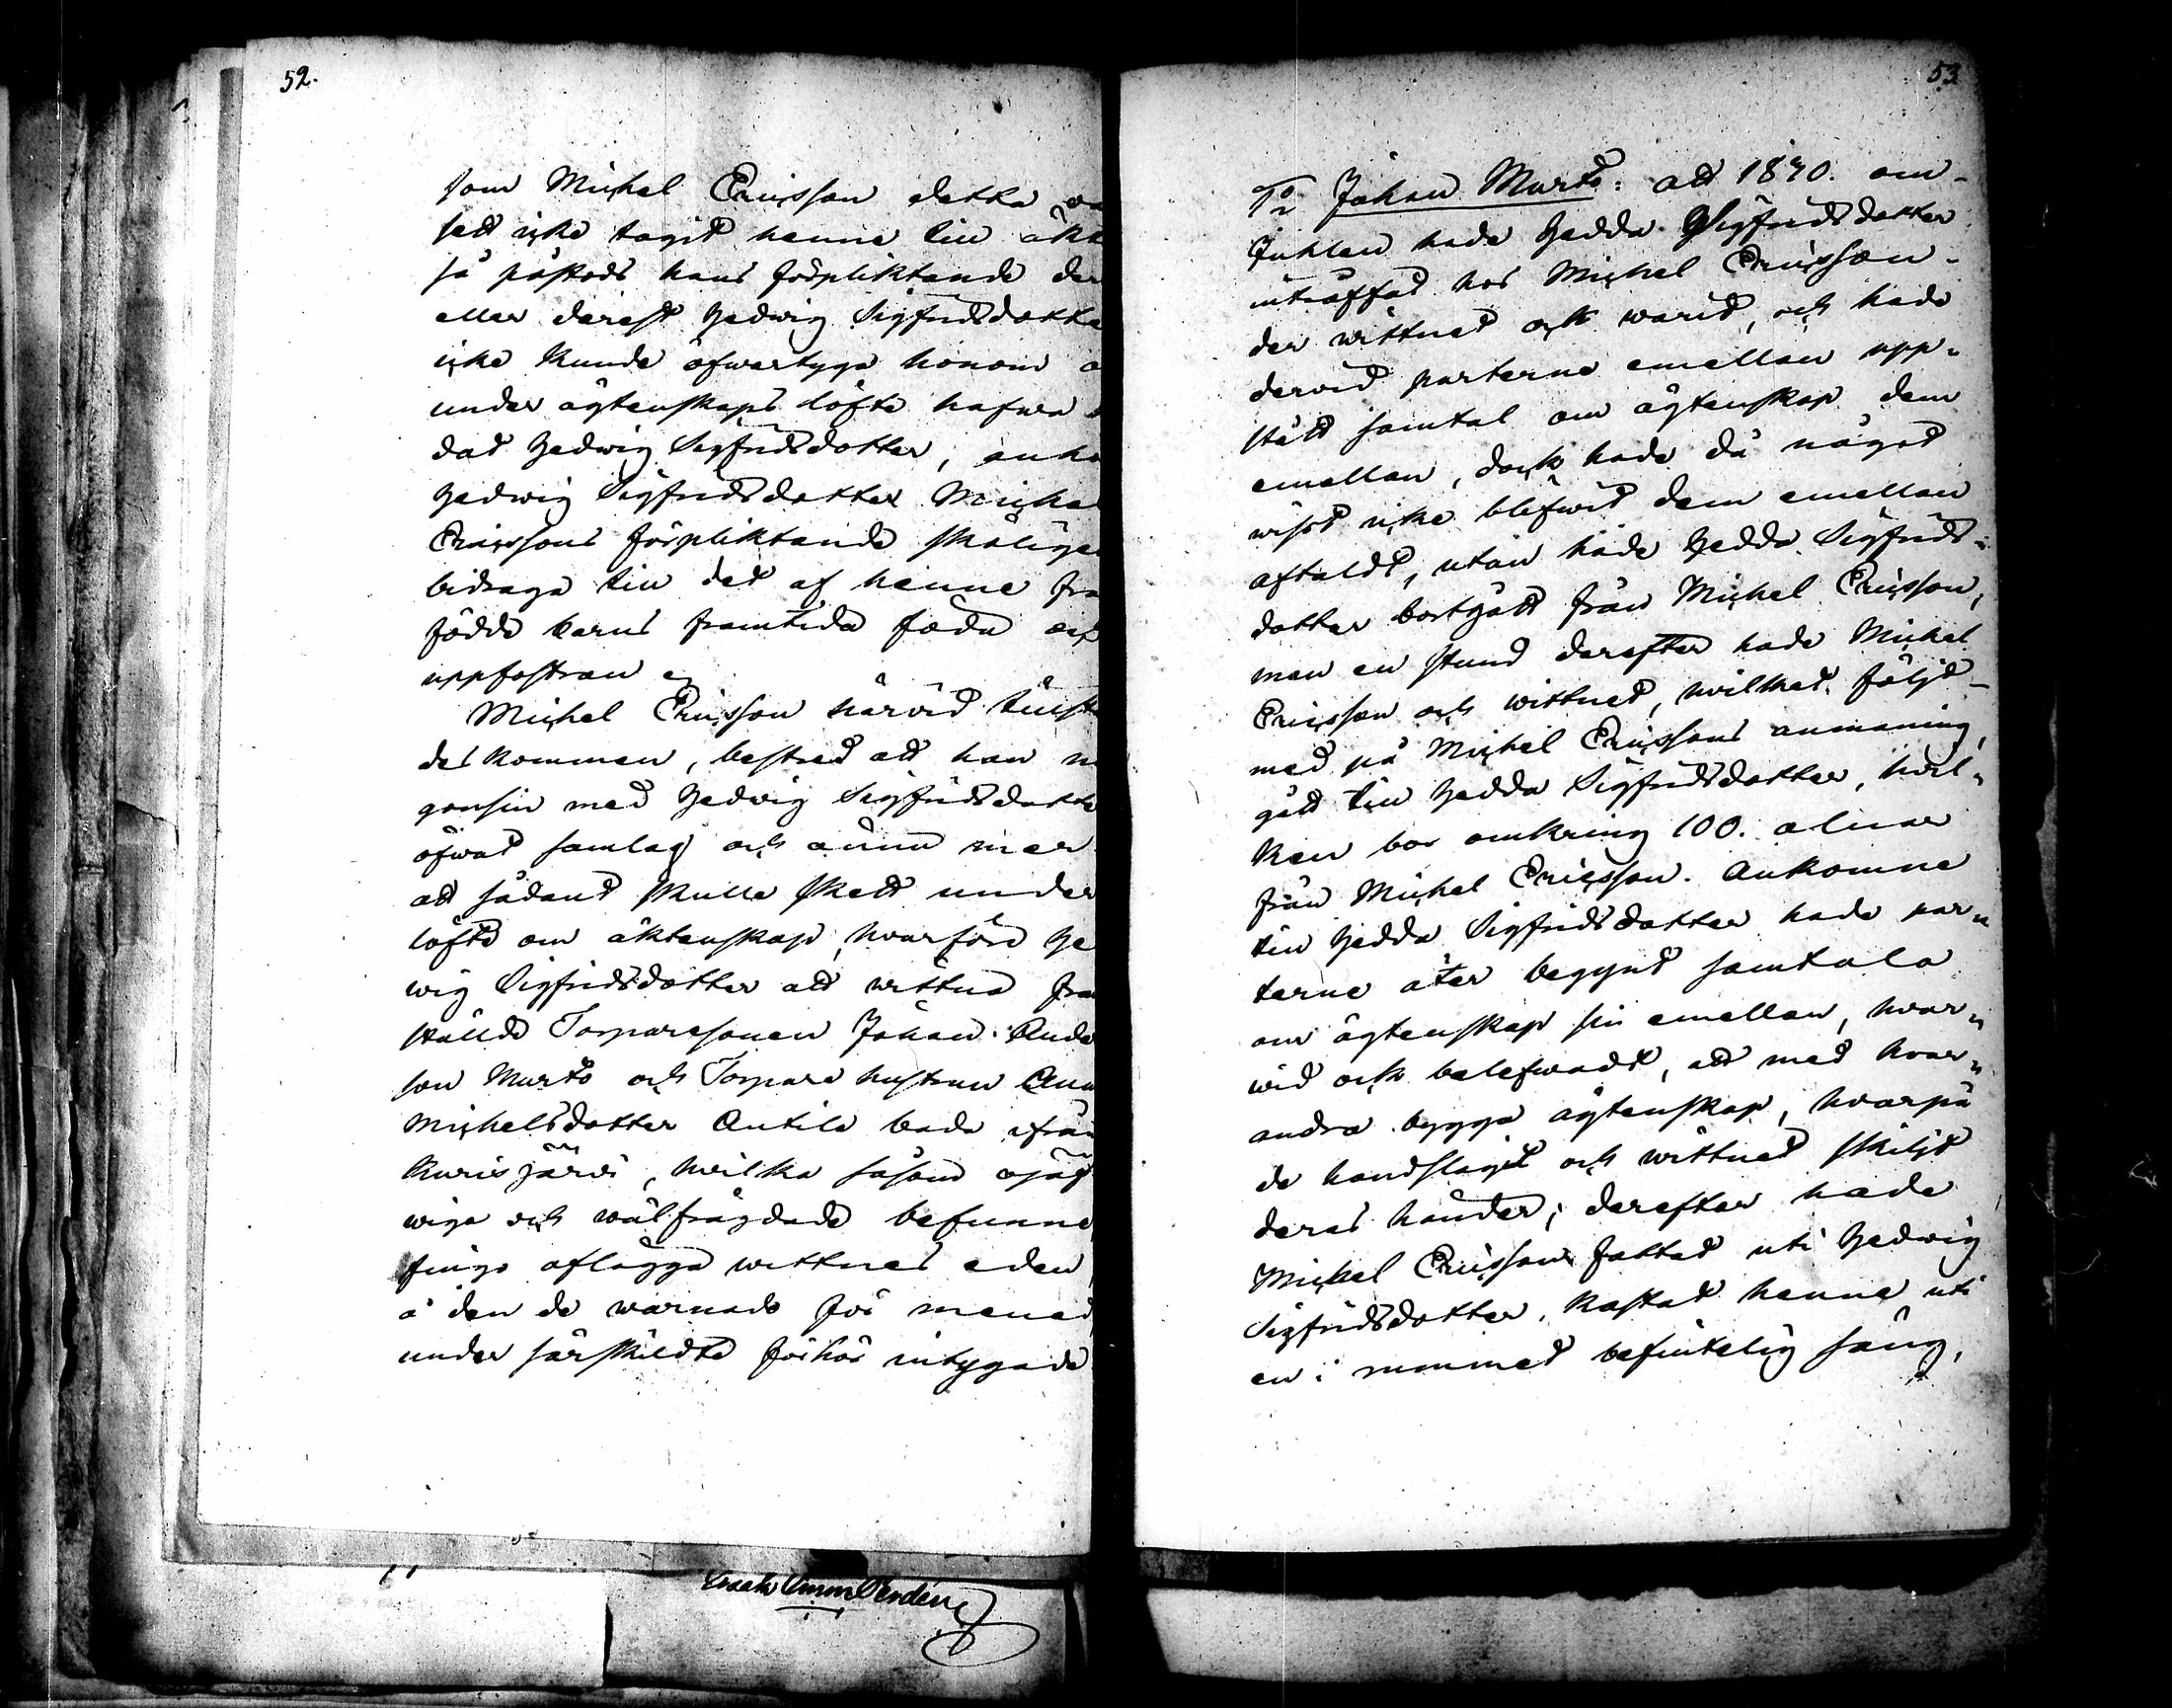 52.
som Michel Ericsson detta oa
sett icke tagit henne till äkt
så påstods hans förpliktande der
eller derest Hedwig Sigfridsdotte
icke kunde öfwertyga honom a
under ägtenskaps löfte hafwa
dat Hedwig Sigfridsdotter, anhö
Hedwig Sigfridsdotter Michel
Ericssons förpliktande skäligen
bidraga till det af henne fra
födde barns framtida föda och
uppfostran
Michel Ericsson härvid tillst
des kommen, bestred att han n
gonsin med Hedwig Sigfridsdotte
öfwat samlag och ännu mer
att sådant skulle skett under
löfte om äktenskap, hvarföre He
wig Sigfridsdotter att wittna fra
stälde Torparesonen Johan Ande
son Murto och Torpare hustrun Ann
Michelsdotter Antila bada ifrån
Kurisjärvi, hvilka såsom ojäf
wiga och wälfrägdade befunne
fingo aflägga wittnes eden,
å den de warnade för mened,
under särskildte förhör intygade
53
To Johan Murto: att 1840. om-
Juhlen hade Hedda Sigfridsdotter
inträffat hos Michel Ericsson
der wittnet ock warit, och hade
dervid parterne emellan upp-
stått samtal om ägtenskap dem
emellan, dock hade då något
wist icke blefwit dem emellan
aftaldt, utan hade Hedda Sigfrids-
dotter bortgått från Michel Ericsson,
men en stund derefter hade Michel
Ericsson och wittnet, hvilket följt
med på Michel Ericssons anmaning,
gått till Hedda Sigfridsdotter, hvil-
ken bor omkring 100. alnar
från Michel Ericsson. Ankomne
till Hedda Sigfridsdotter hade par-
terne åter begynt samtala
om ägtenskap sin emellan, hvar-
wid ock belefwadt, att med hvar-
andra bygga ägtenskap, hvarpå
de handslagit och wittnet skiljt
deras händer; derefter hade
Michel Ericsson fattat uti Hedwig
Sigfridsdotter, kastat henne uti
en i rummet befintelig säng,